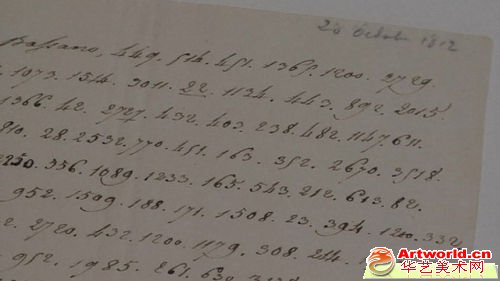 20 Octobre 1812
Bassano, 449. 514. 451. 1365. 1200. 2729.
1073. 1514. 3011. 22. 1134. 443. 892. 2013.
1366. 42. 2727. 432. 403. 238. 482. 1147. 611.
910. 28. 2532. 770. 451. 163. 352. 2670. 3518.
2250. 356. 1089. 1233. 165. 543. 212. 613. 82.
952. 1509. 188. 171. 1508. 23. 394. 1210. 332.
2720. 432. 1200. 1179. 308. 214.
952. 1985. 861. 630.
Artworld.cn
华艺美术网